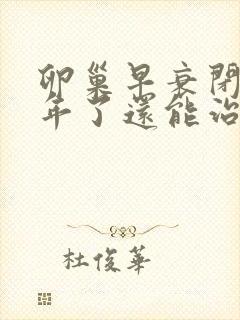 卵巢早衰閉
年了還能治
杜俊華